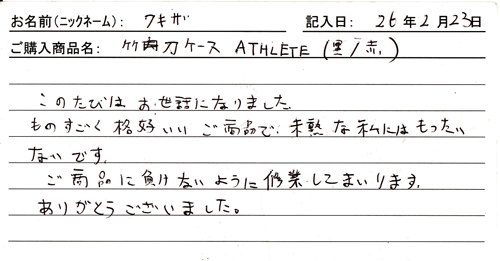 お名前(ニックネーム): ワキガ 記入日: 26年2月23日
ご購入商品名: 竹刀ケース ATHLETE (黒/赤)
このたびは お世話になりました。
ものすごく 格好いい ご商品で、未熟な私にはもったい
ないです。
ご商品に負けないように修業してまいります。
ありがとうございました。